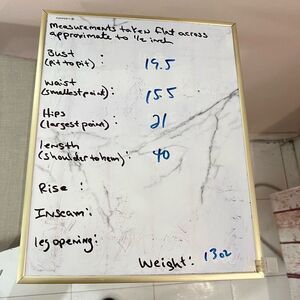 measurements taken flat across
approximate to 1/2 inch
Bust
(pit to pit) 19.5
Waist
(smallest point) 15.5
Hips
(largest point) 21
length
(shoulder to hem) 40
Rise :
Inseam :
leg opening :
Weight : 13oz